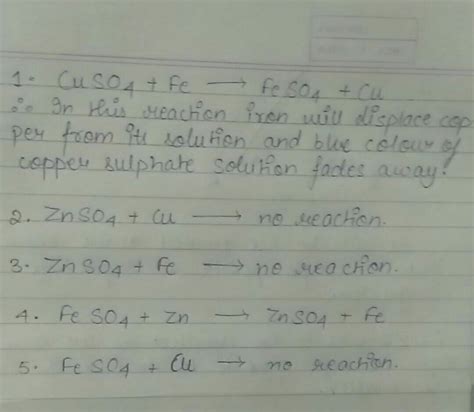 1. CuSO4 + Fe ⟶ FeSO4 + Cu
∴ In this reaction iron will displace cop
per from its solution and blue colour of
copper sulphate solution fades away.
2. ZnSO4 + Cu ⟶ no reaction.
3. ZnSO4 + Fe ⟶ no reaction.
4. FeSO4 + Zn ⟶ ZnSO4 + Fe
5. FeSO4 + Cu ⟶ no reaction.